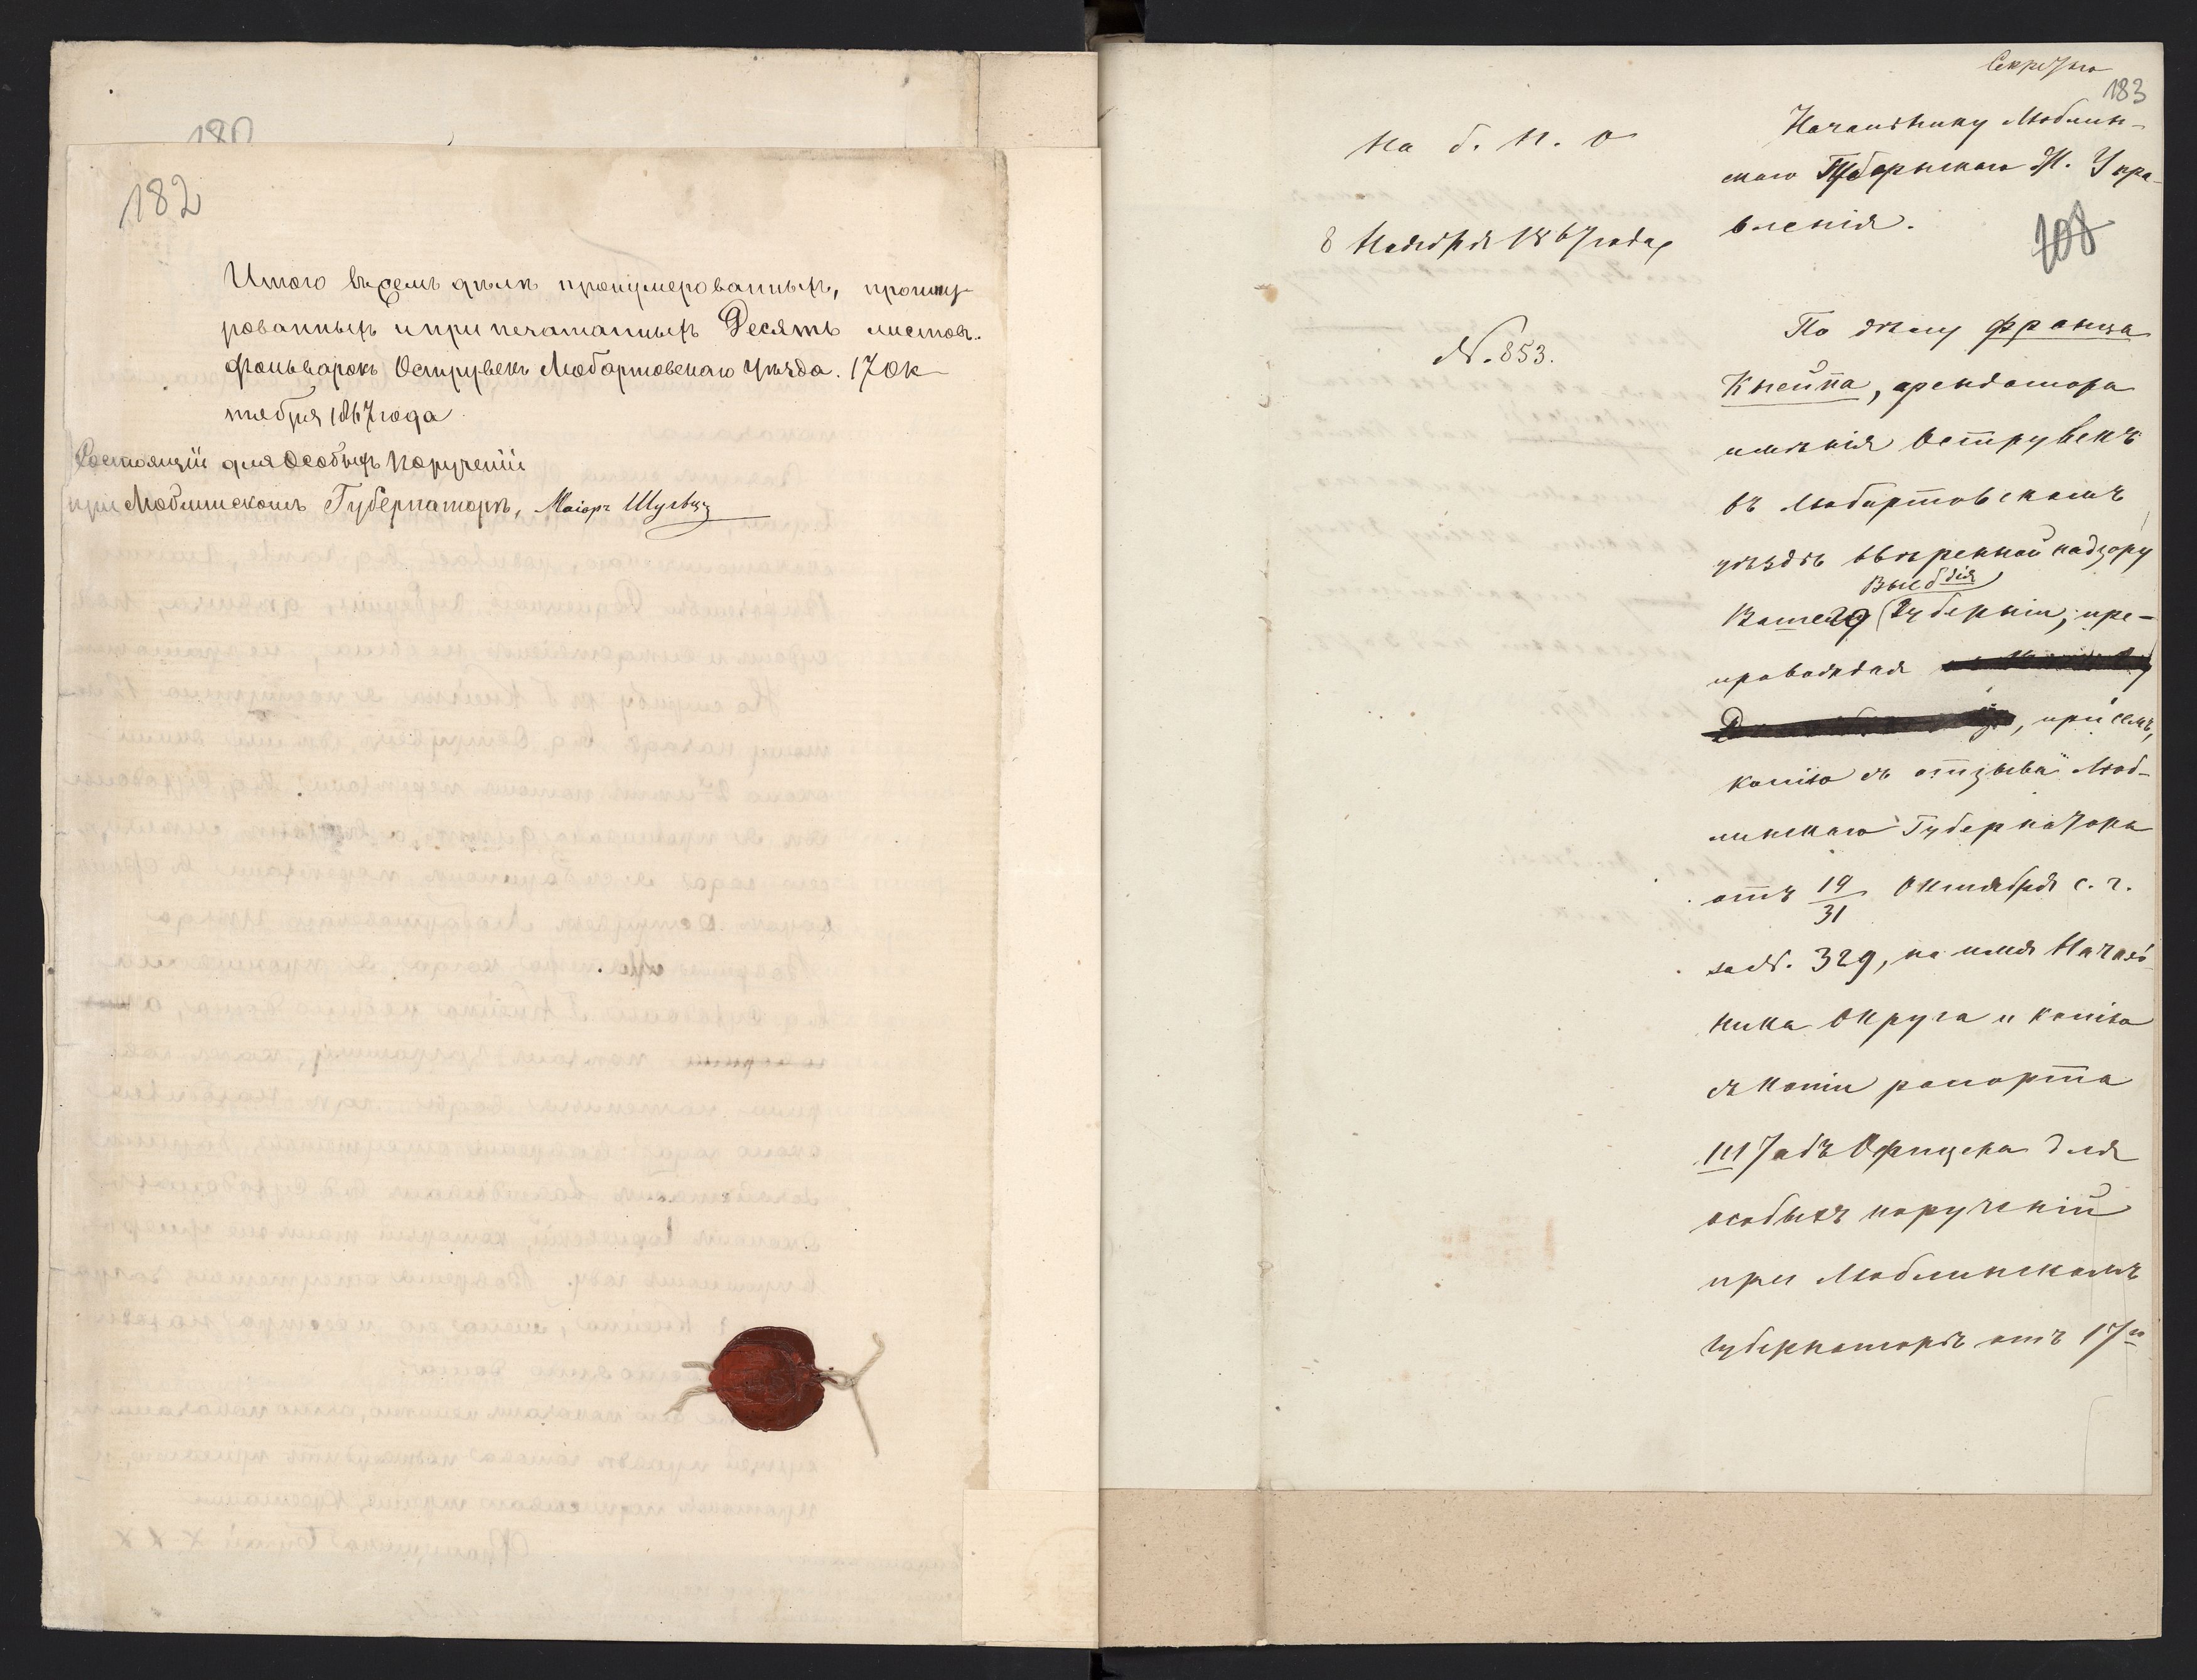 180
182
Итого въ семъ дѣлѣ пронумерованныхъ, прошну-
рованныхъ и припечатанныхъ Десять листовъ.
Фольварокъ Острувекъ Любартовскаго Уѣзда. 17 Ок-
тября 1867 года
Состоящій для Особыхъ Порученій
при Люблинскомъ Губернаторѣ, Маіоръ Шульцъ
Секретно
183
Начальнику Люблин-
скаго Губернскаго Ж. Упра-
вленія.
108
На б. н. о
8 Ноября 1867 года
№. 853.
По дѣлу Франца
Кнейпа, арендатора
имѣнія Острувекъ
въ Любартовскомъ
уѣздѣ ввѣренной надзору
Выс бдія
Вашего Губерніи, пре-
провождая
, при семъ,
копію съ отзыва Люб-
линскаго Губернатора
отъ 19/31 Октября с. г.
за №. 329, на имя Началь-
ника Округа и копію
съ копіи рапорта
Штабъ Офицера для
особыхъ порученій
при Люблинскомъ
Губернаторѣ отъ 17го